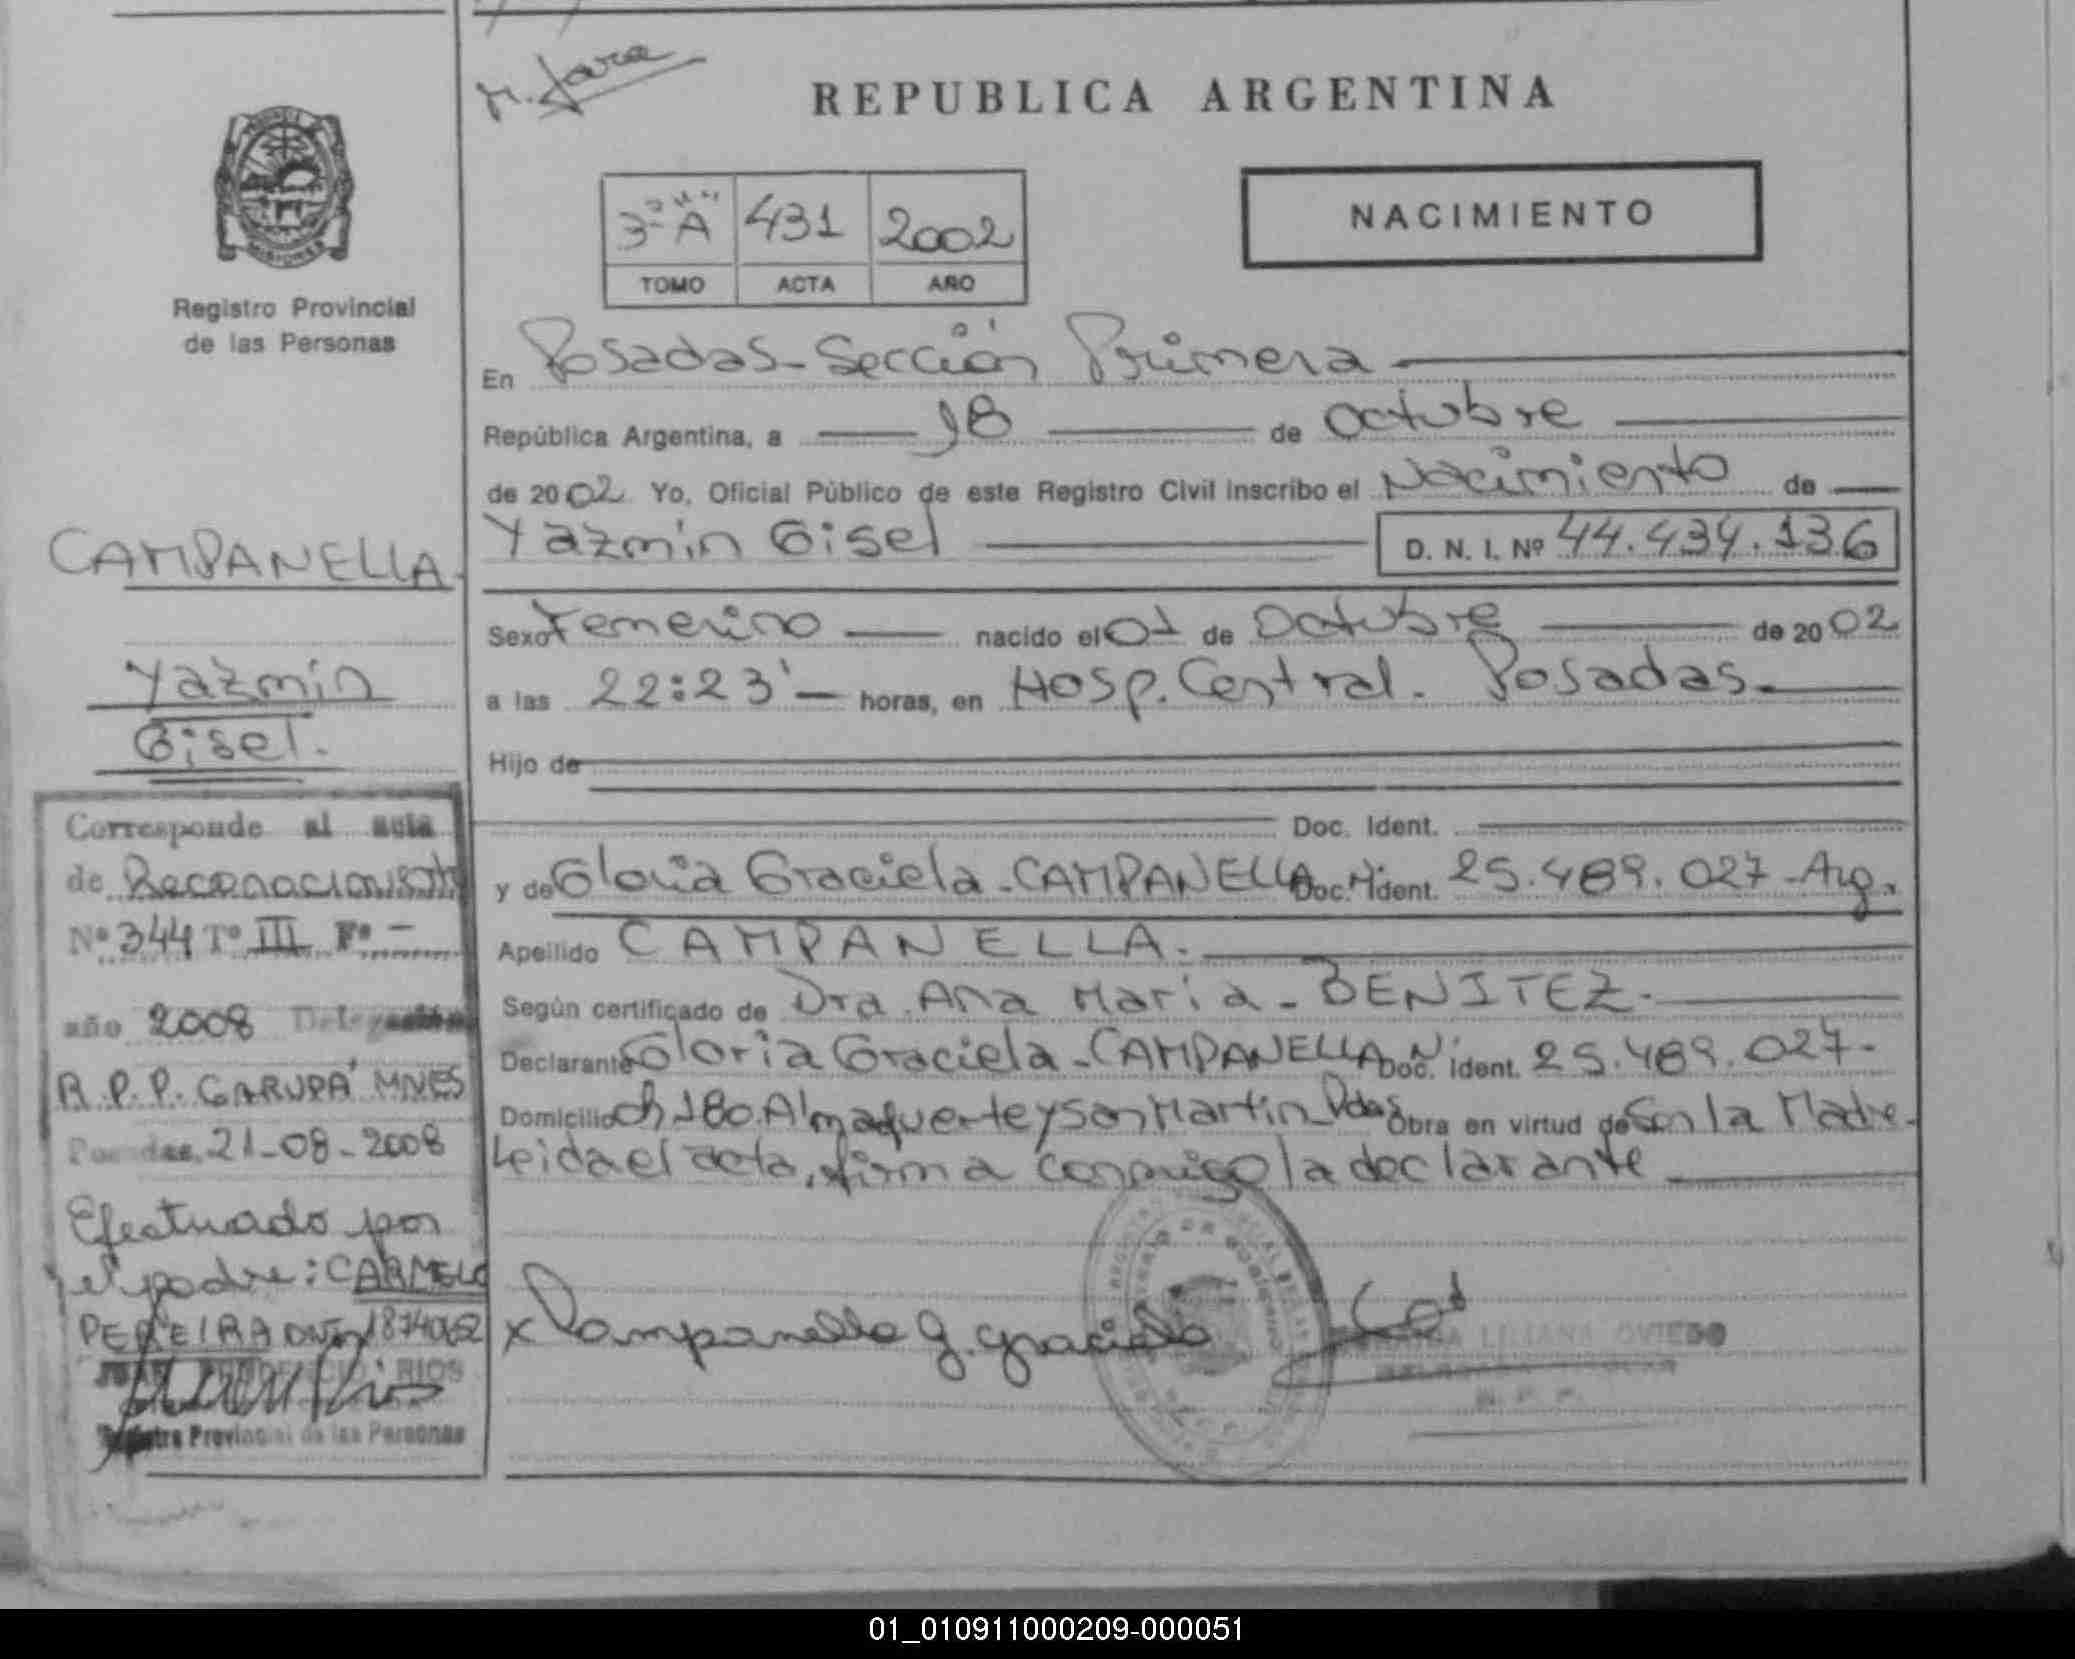 M. Jara
REPUBLICA ARGENTINA
NACIMIENTO
3º "A" 431 2002
TOMO ACTA AÑO
Registro Provincial
de las Personas
En Posadas - Sección Primera
República Argentina, a 18 de Octubre
de 2002 Yo, Oficial Público de este Registro Civil inscribo el Nacimiento de
Yazmín Gisel D. N. I. Nº 44.434.136
Sexo Femenino nacido el 01 de Octubre de 2002
a las 22:23' horas, en Hosp. Central. Posadas.
Hijo de
Doc. Ident.
y de Gloria Graciela - CAMPANELLA Doc. Ident. 25.489.027 - Arg.
Apellido CAMPANELLA.
Según certificado de Dra. Ana María - BENITEZ.
Declarante Gloria Graciela - CAMPANELLA Doc. Ident. 25.489.027.
Domicilio Ch 180. Almafuerte y San Martín Pdas Obra en virtud de Ser la Madre.
Leida el acta, firma conmigo la declarante
x Campanella G. Graciela
LILIANA OVIEDO
R. P. P.
CAMPANELLA.
Yazmín
Gisel.
Corresponde al acta
de Reconocimiento
Nº 344 Tº III Fº -
año 2008 Delegación
R.P.P. GARUPA' MNES
Posadas, 21-08-2008
Efectuado por
el padre: CARMELO
PEREIRA
RIOS
Registro Provincial de las Personas
01_010911000209-000051